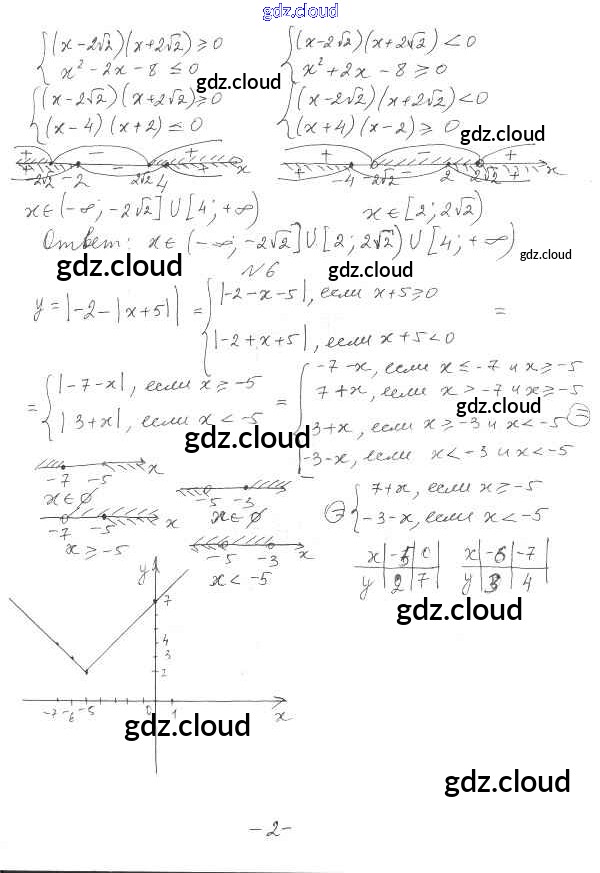 gdz.cloud
{(x-2√2)(x+2√2)≥0
x²-2x-8≤0
{(x-2√2)(x+2√2)<0
x²+2x-8≥0
gdz.cloud
{(x-2√2)(x+2√2)≥0
(x-4)(x+2)≤0
{(x-2√2)(x+2√2)<0
(x+4)(x-2)≥0
gdz.cloud
+ - - + +
-2√2 -2 2√2 4 x
+ - - + +
-4 -2√2 2 2√2 x
x∈(-∞;-2√2]∪[4;+∞)
x∈[2;2√2)
Ответ: x∈(-∞;-2√2]∪[2;2√2)∪[4;+∞)
gdz.cloud
gdz.cloud
№6
y=|-2-|x+5|| = {|-2-x-5|, если x+5≥0
|-2+x+5|, если x+5<0 =
= {|-7-x|, если x≥-5
|3+x|, если x<-5
= {-7-x, если x≤-7 и x≥-5
7+x, если x>-7 и x≥-5
3+x, если x≥-3 и x<-5
-3-x, если x<-3 и x<-5 =
gdz.cloud
gdz.cloud
-7 -5 x
x∈∅
-7 -5 x
x≥-5
-5 -3
x∈∅
-5 -3 x
x<-5
= {7+x, если x≥-5
-3-x, если x<-5
x -5 0
y 2 7
x -6 -7
y 3 4
gdz.cloud
y
7
4
3
2
-7 -6 -5 0 1 x
gdz.cloud
gdz.cloud
-2-